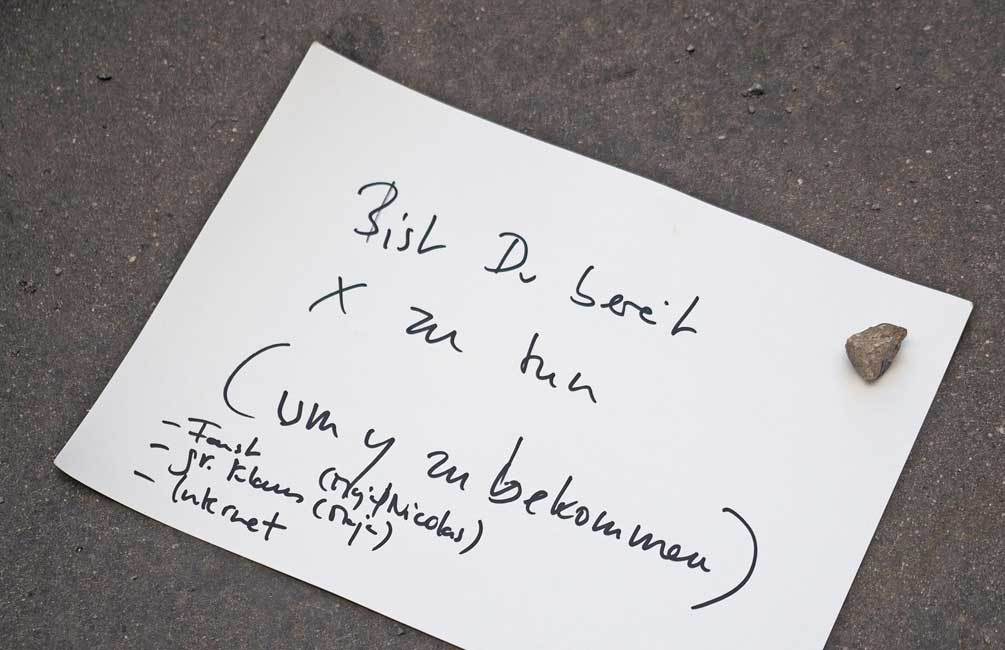 Bist Du bereit
X zu tun
(um y zu bekommen)
- Faust (Maja/Nicolas)
- gr. Klaus (Maja)
- Internet